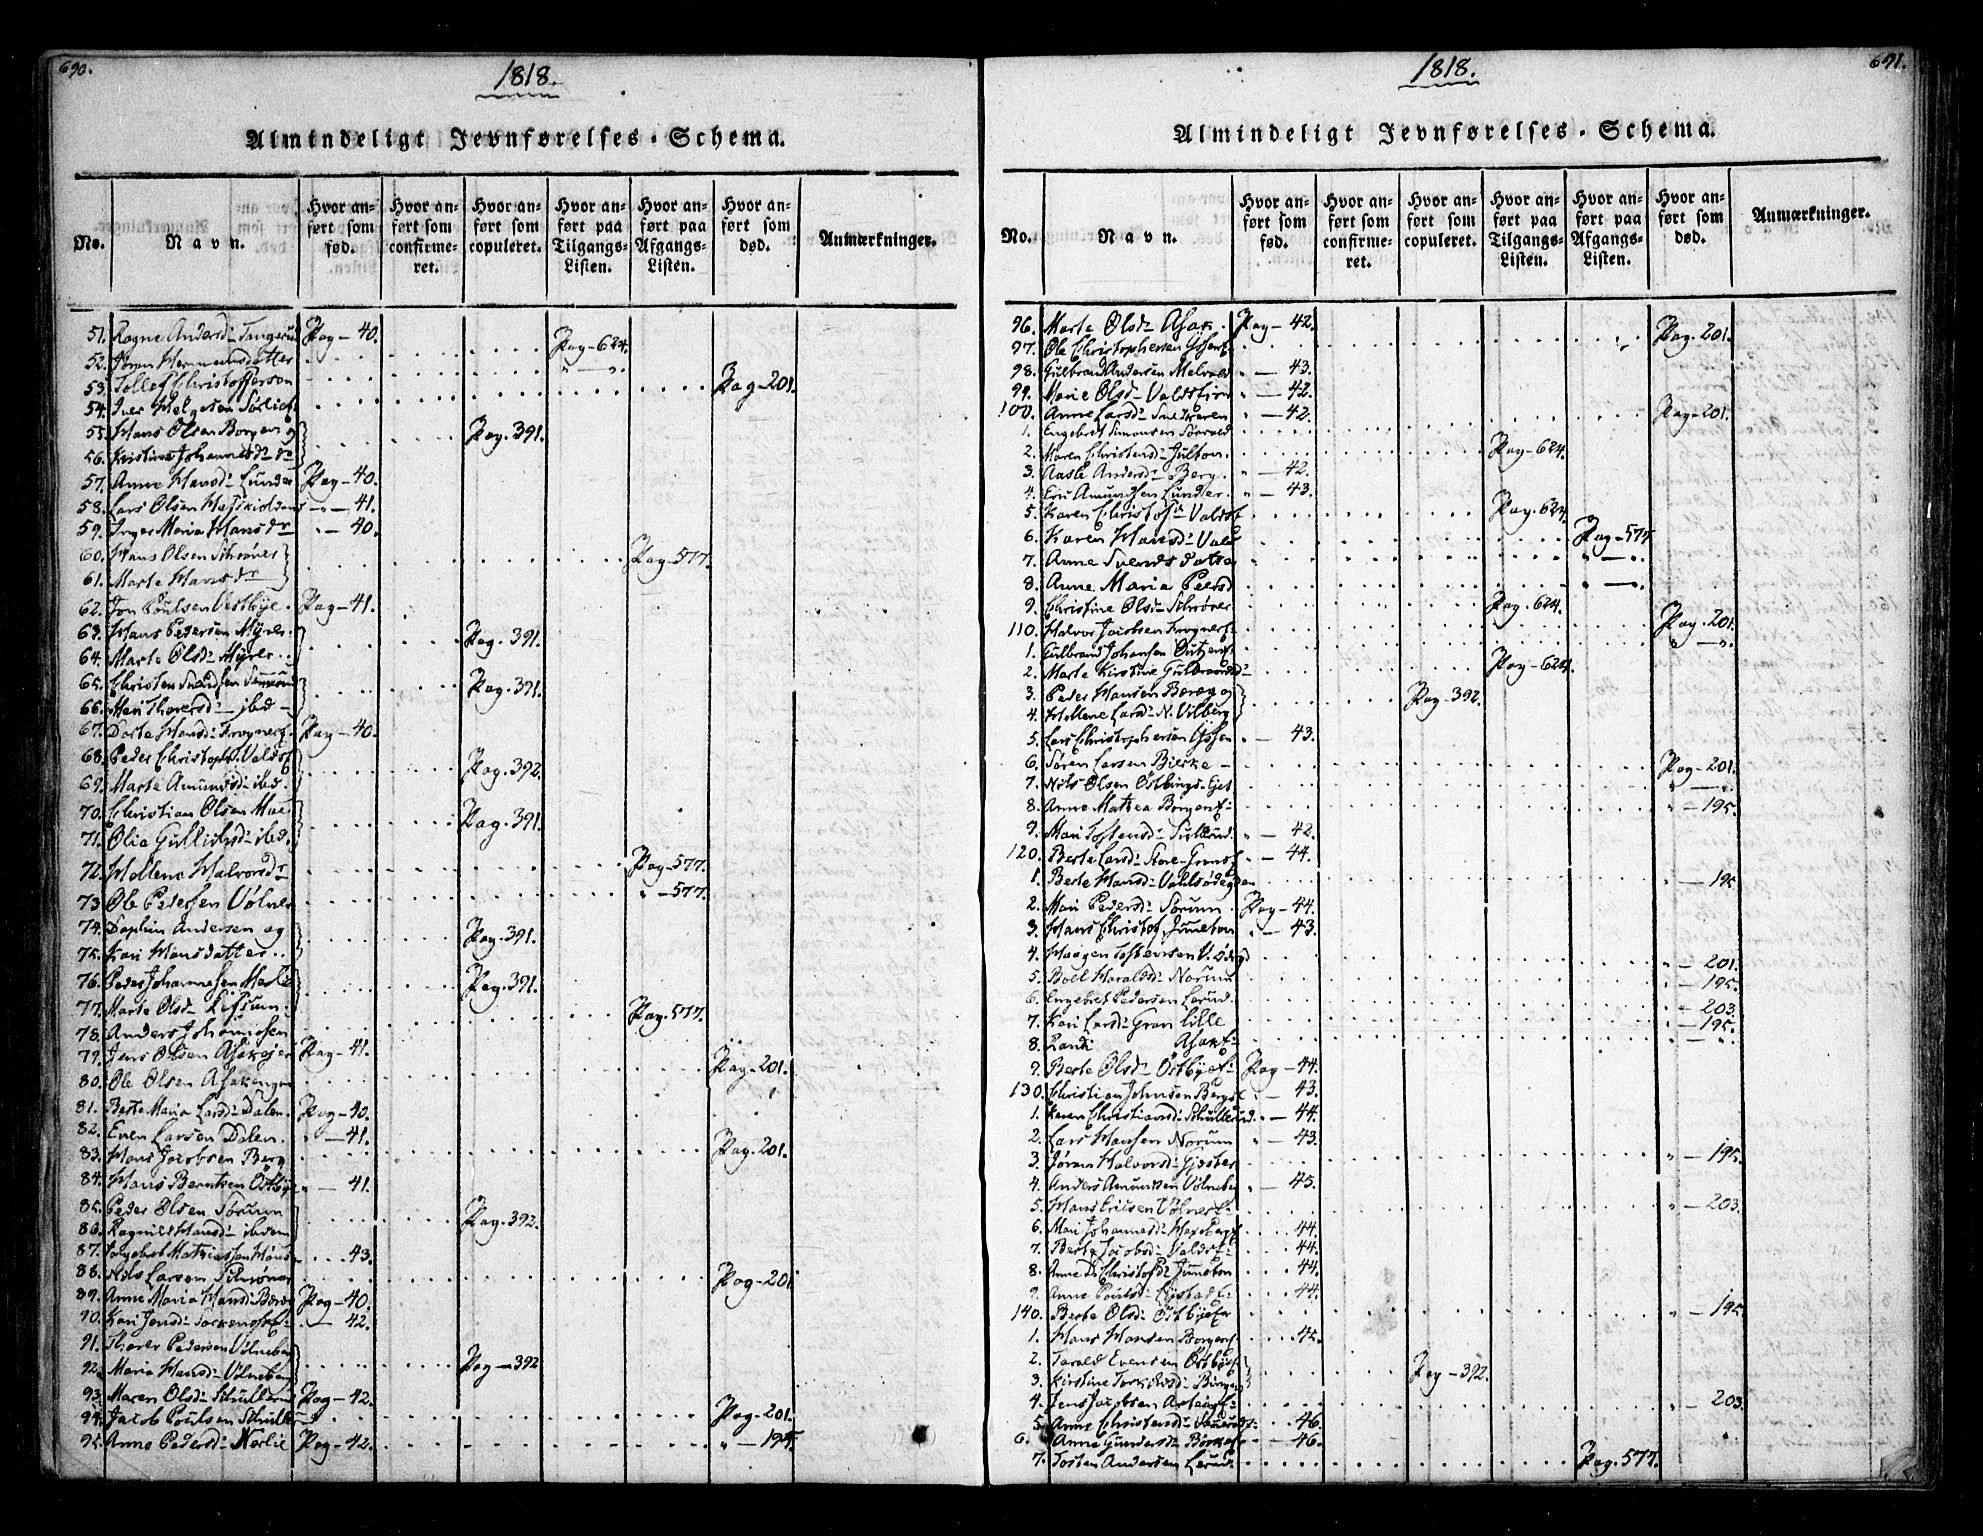 690.
1818.
Almindeligt Jevnførelses-Schema.
No. Navn. Hvor anført som fød. Hvor anført som confirmeret. Hvor anført som copuleret. Hvor anført paa Tilgangs-Listen. Hvor anført paa Afgangs-Listen. Hvor anført som død. Anmærkninger.
51. Ragne Andersd: Pag-40.
52. Jøran Hermansdatter Pag-624.
53. Tollef Christoffersen " — ".
54. Iver Helgesen Pag-201.
55. Hans Olsen Borgen og Pag. 391.
56. Kirstine Johannesd:
57. Anne Hansd: Lunder Pag-40.
58. Lars Olsen " — 41.
59. Inger Maria Hansdr " — 40.
60. Hans Olsen Schrøner Pag-577.
61. Marte Hansdr
62. Jon Poulsen Vestbye. Pag-41.
63. Hans Pedersen Myrer. Pag. 391.
64. Marte Olsd: Myrer.
65. Christen Pag. 391.
66. Mari Thoresd: ibid
67. Dorte Hansd: Frogner Pag-40.
68. Peder Christophs. Valdsf Pag. 392.
69. Marte Amundsd: ibd.
70. Christian Olsen Moe Pag. 391.
71. Olia Gulliksd: ibd.
72. Hellene Halvorsdr Pag-577.
73. Ole Pedersen Vølner " — 577.
74. Andersen og Pag. 391.
75. Kari Hansdatter
76. Peder Johannesen Pag. 391.
77. Marte Olsd: Lefsum
78. Anders Johannesen Pag. 577.
79. Jens Olsen Asak Pag-41.
80. Ole Olsen Asakengen Pag-201.
81. Berte Maria Larsd: Dalen. Pag-40.
82. Even Larsen Dalen. " — 41.
83. Hans Jacobsen Berg Pag. 201.
84. Hans Berntsen Østbye " — 41.
85. Peder Olsen Sørum Pag. 392.
86. Ragnild Hansd: ibidem
87. Ingebret Mathiassen 43.
88. Nils Larsen Schrøner Pag-201
89. Anne Maria Hansd: Pag-40.
90. Kari Jensd: " — 42.
91. Thorer Pedersen Vølneberg Pag-392
92. Maria Hansd: Vølneberg
93. Maren Olsd: Schullerud Pag-42.
94. Jacob Poulsen Pag. 201.
95. Anne Pedersd: Nerlie Pag-42. " — 195.
691.
1818.
Almindeligt Jevnførelses-Schema.
No. Navn. Hvor anført som fød. Hvor anført som confirmeret. Hvor anført som copuleret. Hvor anført paa Tilgangs-Listen. Hvor anført paa Afgangs-Listen. Hvor anført som død. Anmærkninger.
96. Marte Olsd: Asak. Pag-42.
97. Ole Christophersen Pag. 201.
98. Gulbrand Andersen Melvold " — 43.
99. Marie Olsd: " — 42.
100. Anne Larsd: " — 42.
1. Engebret Simonsen Pag-201.
2. Maren Christensd: Pag-624.
3. Aasle Andersd: Berg. " — 42.
4. Eric Amundsen Lunder. " — 43.
5. Karen Christofd: Valdsf Pag. 624.
6. Karen Hansd: Vald Pag-577
7. Anne Svends datter " — ".
8. Anne Maria Peersd " — ".
9. Christine Olsd: Schrøner Pag. 624.
110. Halvor Jacobsen Frogner Pag. 201.
1. Gulbrand Johansen " — ".
2. Marte Kirstine Gulbrandsd: Pag-624.
3. Peder Hansen og Pag-392.
4. Hellene Larsd: N. Vilberg
5. Lars Christophersen " — 43.
6. Søren Larsen Bierke Pag-201.
7. Nils Olsen " — ".
8. Anne Mathea " — 195.
9. Mari " — 42.
120. Berte Larsd: Store- " — 44.
1. Berte Hansd: " — 195
2. Mari Pedersd: Sørum. Pag-44.
3. Hans Christof. " — 43.
4. Haagen Tostensen " — 201.
5. Boel Haraldsd: Norum " — 195.
6. Engebret Pedersen Lerud. " — 203.
7. Kari Larsd: Gran lille " — 195.
8. Randi Asak " — ".
9. Berte Olsd: Østbye Pag-44.
130. Christian Johnsen " — 43.
1. Karen Christiansd: Schullerud. " — 44.
2. Lars Hansen Norum " — 43.
3. Jøran Halvorsd: " — 195.
4. Anders Amundsen Vølneberg " — 45.
5. Hans Ericsen Vølner " — 203.
6. Mari Johannesd: 44.
7. Berte Jacobsd: Valdsf: 44.
8. Anne D. Christofd: 44.
9. Anne Poulsd: 44.
140. Berte Olsd: Østbye " — 195
1. Hans Hansen 45.
2. Tarald Evensen Østbye Pag-392.
3. Kirstine
4. Jens Jacobsen " — 203.
5. Anne Christensd: 46.
6. Anne Gundersd: " — 46.
7. Tosten Andersen Lerud. Pag. 577.